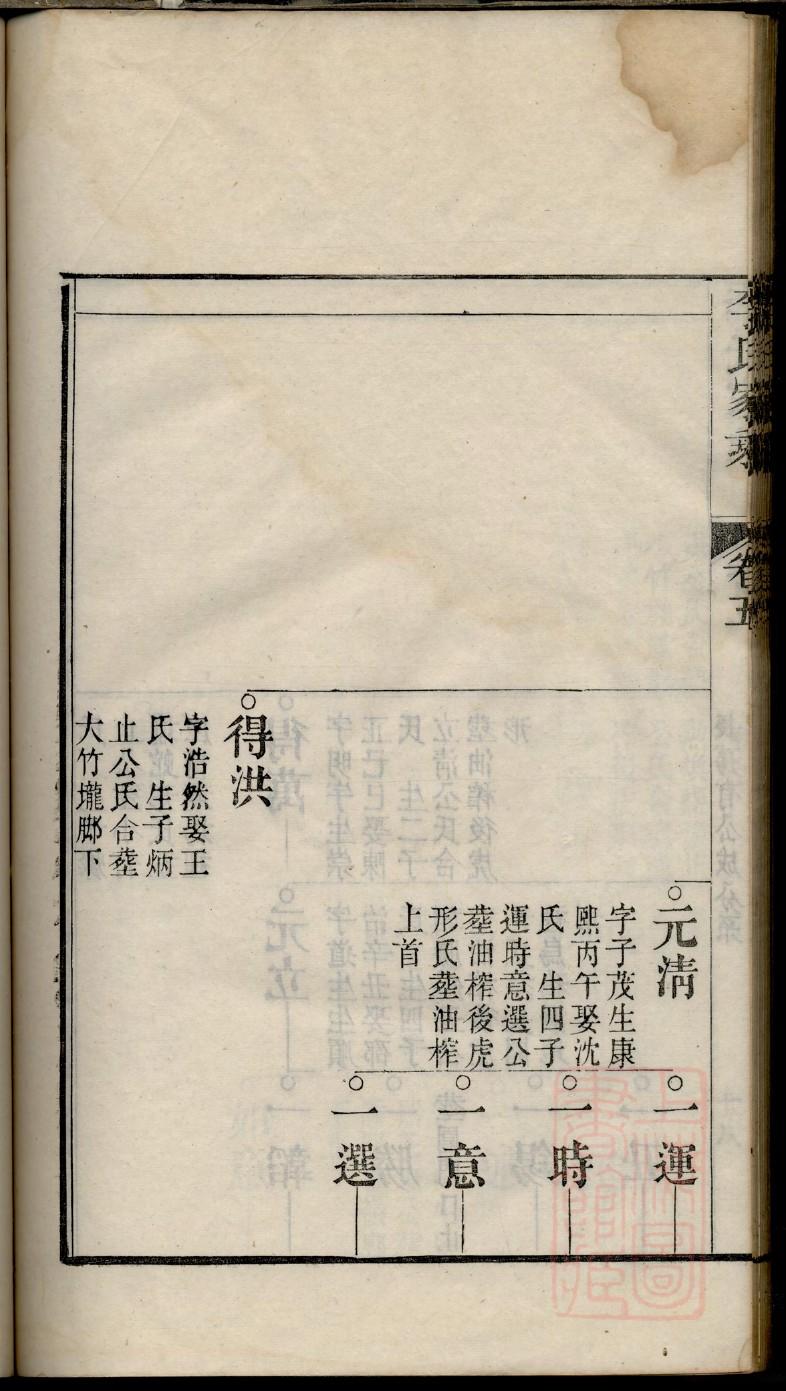 李氏家乘
卷五
元淸
字子茂生康
熙丙午娶沈
氏　生四子
運時意選公
塟油榨後虎
形氏塟油榨
上首
一運
一時
一意
一選
得洪
字浩然娶王
氏　生子炳
止公氏合塟
大竹壠腳下